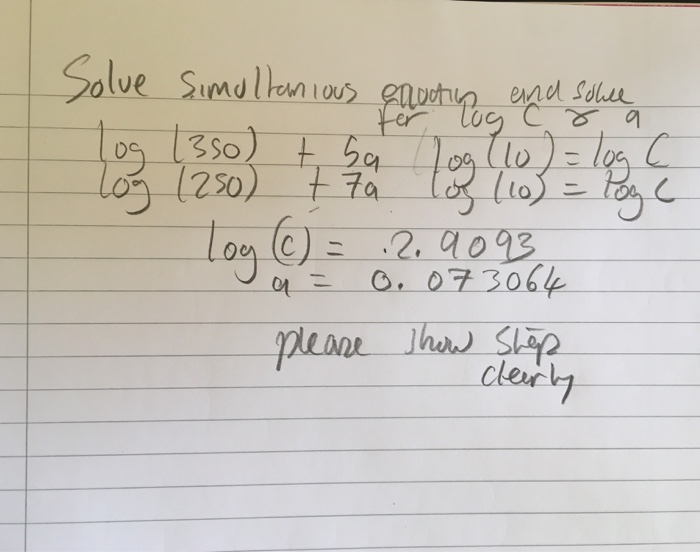 Solve simultanious equation and solve
for log C & a
log (350) + 5a log (10) = log C
log (250) + 7a log (10) = log C
log (C) = 2.9093
a = 0.073064
please show step
clearly